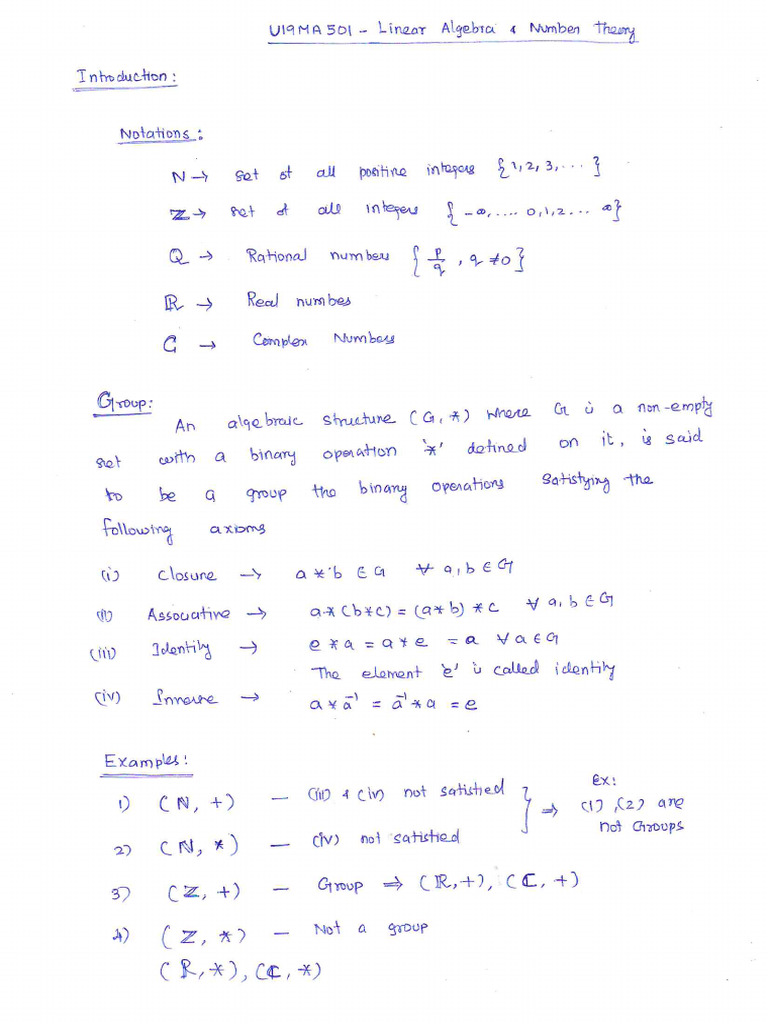 U19MA501 - Linear Algebra & Number Theory
Introduction:
Notations:
N → set of all positive integers {1, 2, 3, ...}
ℤ → set of all integers {-∞, .... 0, 1, 2 ... ∞}
Q → Rational numbers {p/q , q ≠ 0}
ℝ → Real numbers
C → Complex Numbers
Group:
An algebraic structure (G, *) where G is a non-empty
set with a binary operation '*' defined on it, is said
to be a group the binary operations satisfying the
following axioms
(i) Closure → a * b ∈ G ∀ a, b ∈ G
(ii) Associative → a * (b * c) = (a * b) * c ∀ a, b ∈ G
(iii) Identity → e * a = a * e = a ∀ a ∈ G
The element 'e' is called identity
(iv) Inverse → a * a⁻¹ = a⁻¹ * a = e
Examples:
1) (ℕ, +) — (iii) & (iv) not satisfied
2) (ℕ, *) — (iv) not satisfied
} ⇒ ex:
(1), (2) are
not Groups
3) (ℤ, +) — Group ⇒ (ℝ, +), (ℂ, +)
4) (ℤ, *) — Not a group
(ℝ, *), (ℂ, *)